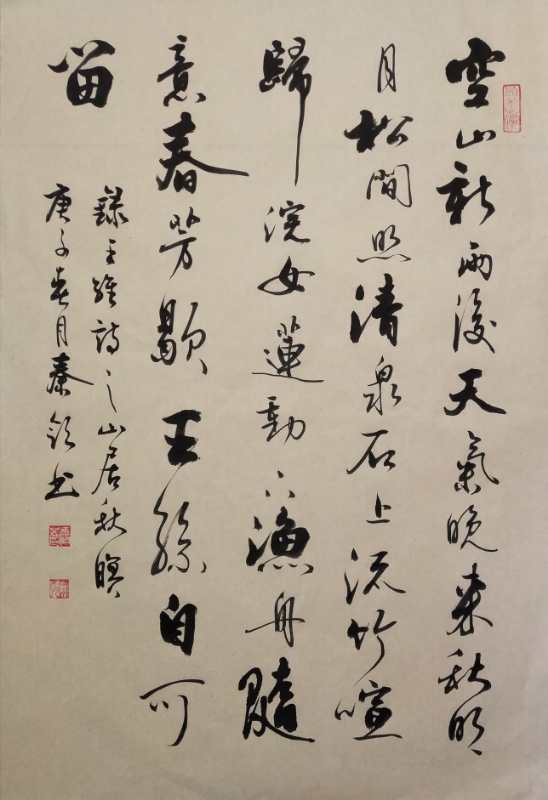 空山新雨後天氣晚來秋明
月松間照清泉石上流竹喧
歸浣女蓮動下漁舟隨
意春芳歇王孫自可
留
錄王維詩之山居秋暝
庚子春月秦书